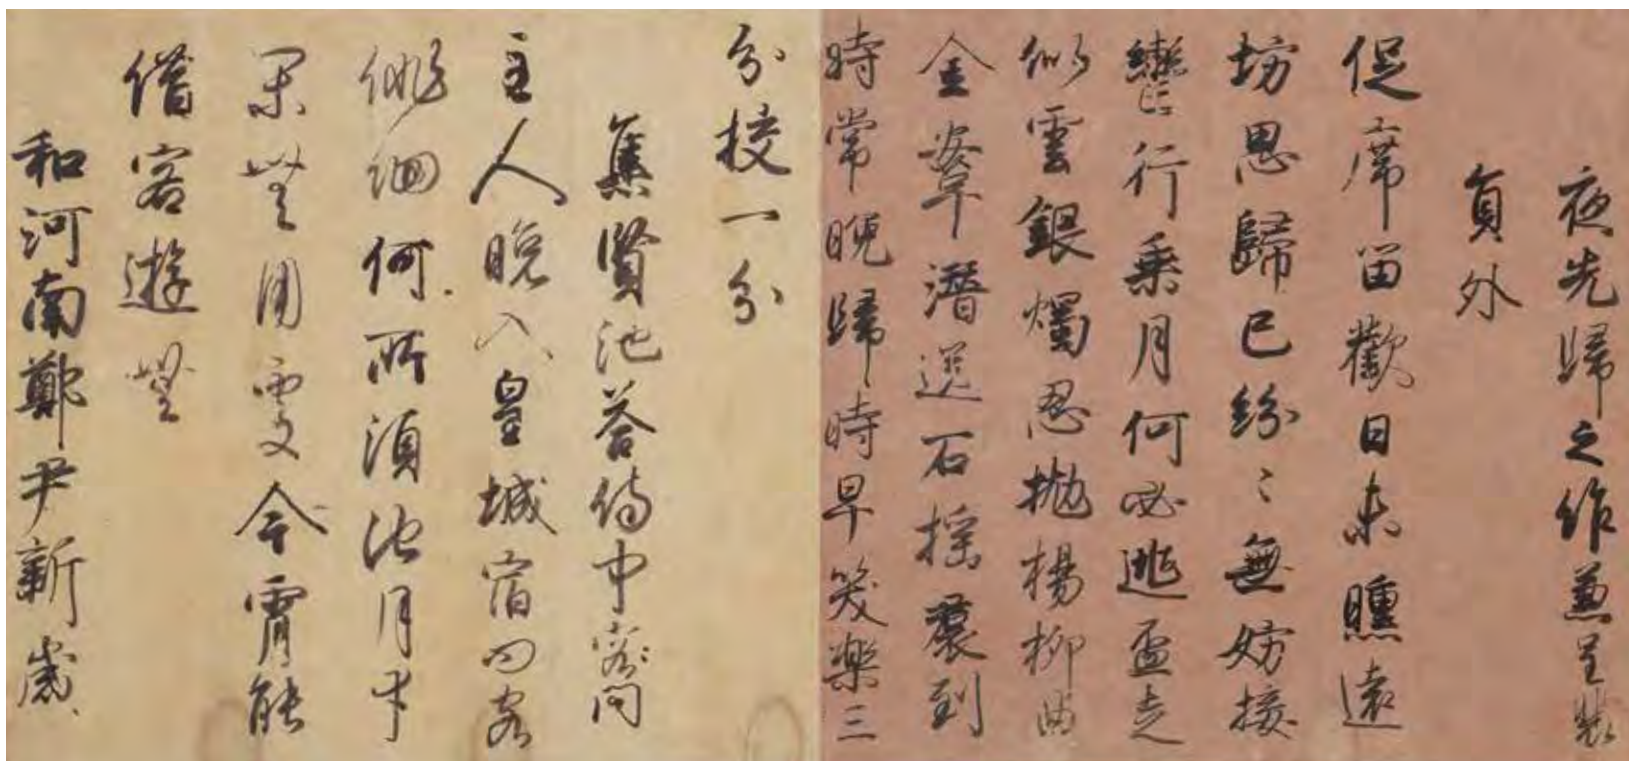 夜先歸之作兼呈裴
員外
促席留歡日未曛遠
坊思歸已紛〻無妨按
轡行乘月何必逃盃走
似雲銀燭忍抛楊柳曲
金鞍潛送石榴裠到
時常晚歸時早笑樂三
分校一分
集賢池答侍中問
主人晚入皇城宿問客
俳佪何所須池月幸
閑無用處今宵能
借客遊無
和河南鄭尹新歲